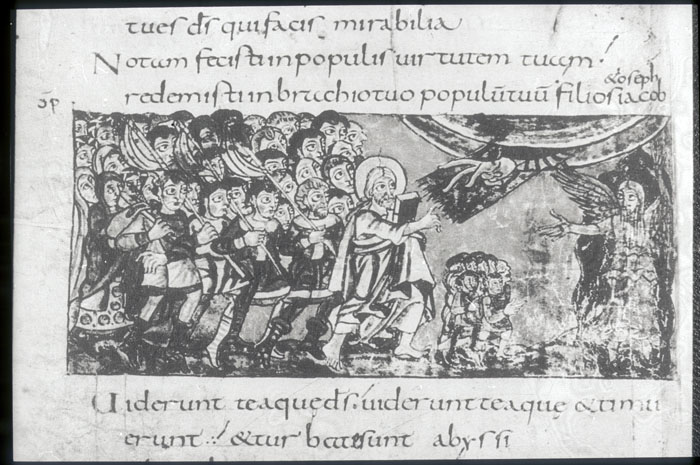 tu es d̄s qui facis mirabilia
Notam fecisti in populis uirtutem tuam!
& ioseph
redemisti in bracchio tuo populū tuū filios iacob
Uiderunt te aquę d̄s! uiderunt te aquę & timu
erunt! & turbate sunt abyssi